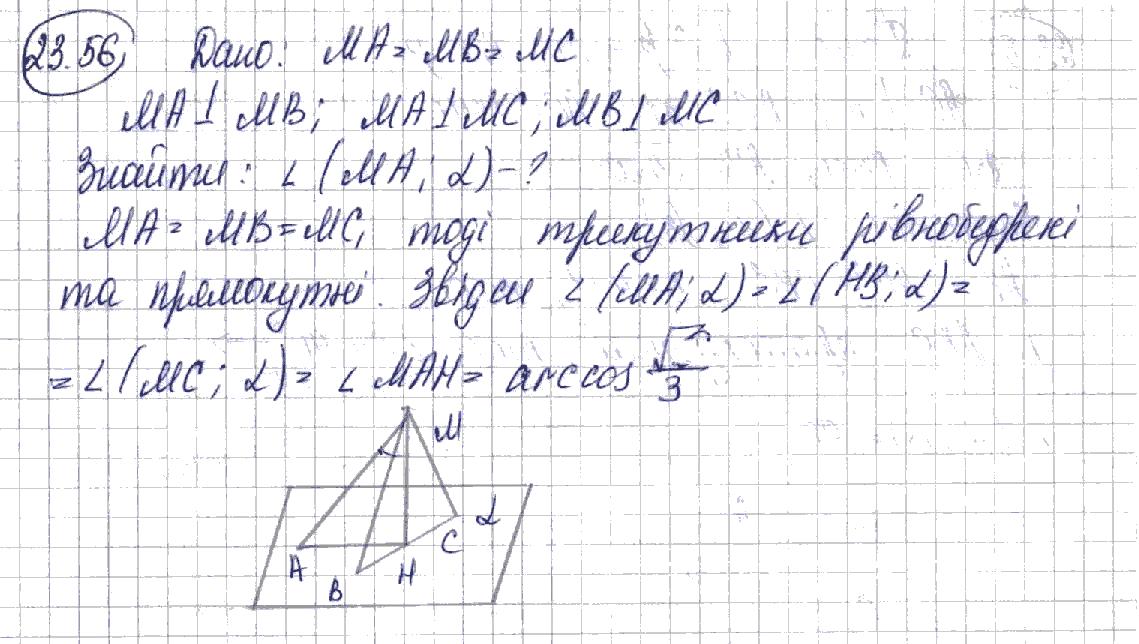 23.56, Дано: MA = MB = MC
MA ⊥ MB; MA ⊥ MC; MB ⊥ MC
Знайти: ∠ (MA; α) - ?
MA = MB = MC, тоді трикутники рівнобедрені
та прямокутні. Звідси ∠ (MA; α) = ∠ (HB; α) =
= ∠ (MC; α) = ∠ MAH = arccos √ / 3
M
α
C
A
B
H